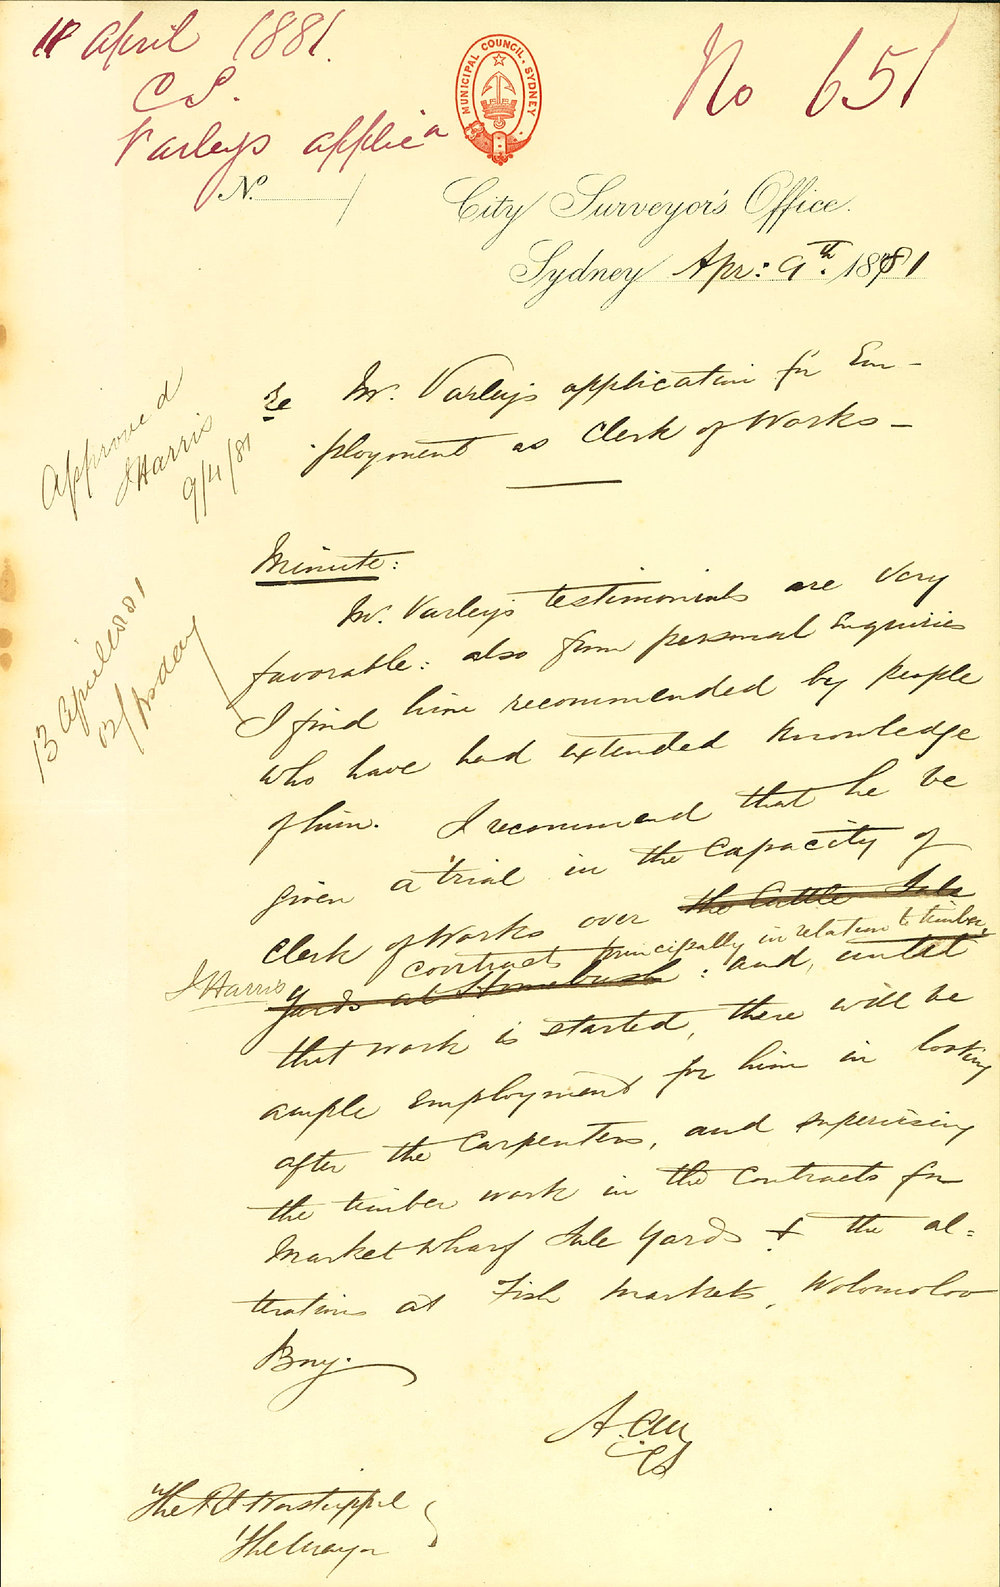 11 April 1881.
C S.
Varleys applicn
No 651
MUNICIPAL COUNCIL. SYDNEY
No. /
City Surveyor's Office.
Sydney Apr: 9th. 1881
Approved
J Harris
9/4/81
Re Mr. Varley's application for Em-
ployment as Clerk of Works -
Minute:
Mr. Varley's testimonials are very
favorable: also from personal enquiries
I find him recommended by people
who have had extended knowledge
of him. I recommend that he be
given a trial in the capacity of
Clerk of Works over the Cattle Sale
contracts principally in relation to timber,
J Harris
yards at Homebush : and, until
that work is started, there will be
ample employment for him in looking
after the Carpenters, and supervising
the timber work in the Contracts for
Market Wharf Sale Yards & the al=
terations at Fish Markets, Wolomoloo
Bay.
13 April 1881
A.C.M
CS
The Rt Worshipful
The Mayor